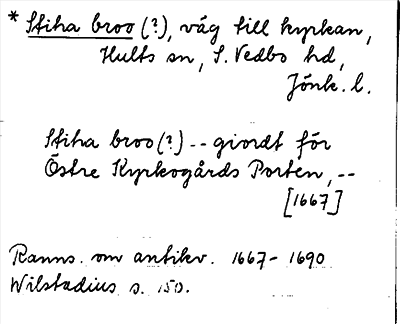 * Stiha broo (?), väg till kyrkan,
Hults sn, S. Vedbo hd,
Jönk. l.
Stiha broo (?) -- giordt för
Östre Kyrkogårds Porten, --
[1667]
Ranns. om antikv. 1667-1690
Wilstadius s. 150.